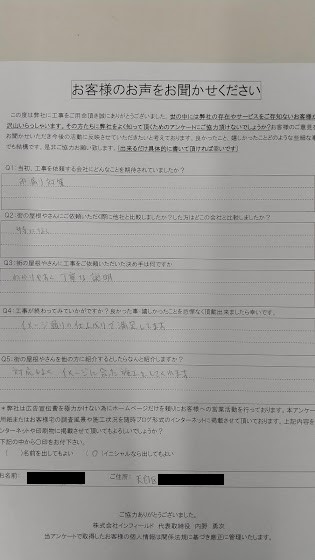 お客様のお声をお聞かせください
この度は弊社に工事をご用命頂き誠にありがとうございました。世の中には弊社の存在やサービスをご存知ないお客様が
沢山いらっしゃいます。その方たちに弊社をよく知って頂くためのアンケートにご協力頂けないでしょうか?お客様のご意見を
お聞かせいただき今後の活動に反映させていただきたいと考えております。良かったこと、嬉しかったことなどのどのような些細な事
でも結構です。是非ご協力お願い致します。(出来るだけ具体的に書いて頂ければ幸いです)
Q1:当初、工事を依頼する会社にどんなことを期待されていましたか?
Q2:街の屋根やさんにご依頼いただく際に他社と比較しましたか?した方はどこの会社と比較しましたか?
特になし
Q3:街の屋根やさんに工事をご依頼いただいた決め手は何ですか
わかりやすい 丁寧な説明
Q4:工事が終わってみていかがですか?良かった事・嬉しかったことを些細なく頂戴出来ましたら幸いです。
イメージ通りの仕上がりで満足してます
Q5:街の屋根やさんを他の方に紹介するとしたらなんと紹介しますか?
対応もよく イメージに合った施工をしてくれます
*弊社は広告宣伝費を極力かけない為にホームページだけを頼りにお客様への営業活動を行っております。本アンケート
用紙またはお客様宅の調査風景や施工状況を随時ブログ形式のインターネットに掲載させて頂いております。上記内容を
インターネットや印刷物に掲載させて頂いてもよろしいでしょうか?
下記の中から○印をお付下さい。
( )名前を出してもよい ( ○ )イニシャルなら出してもよい
お名前: ご住所:
ご協力ありがとうございました。
株式会社インフィールド 代表取締役 内野 高次
当アンケートで取得したお客様の個人情報は関係法規に基づき厳正に管理いたします。